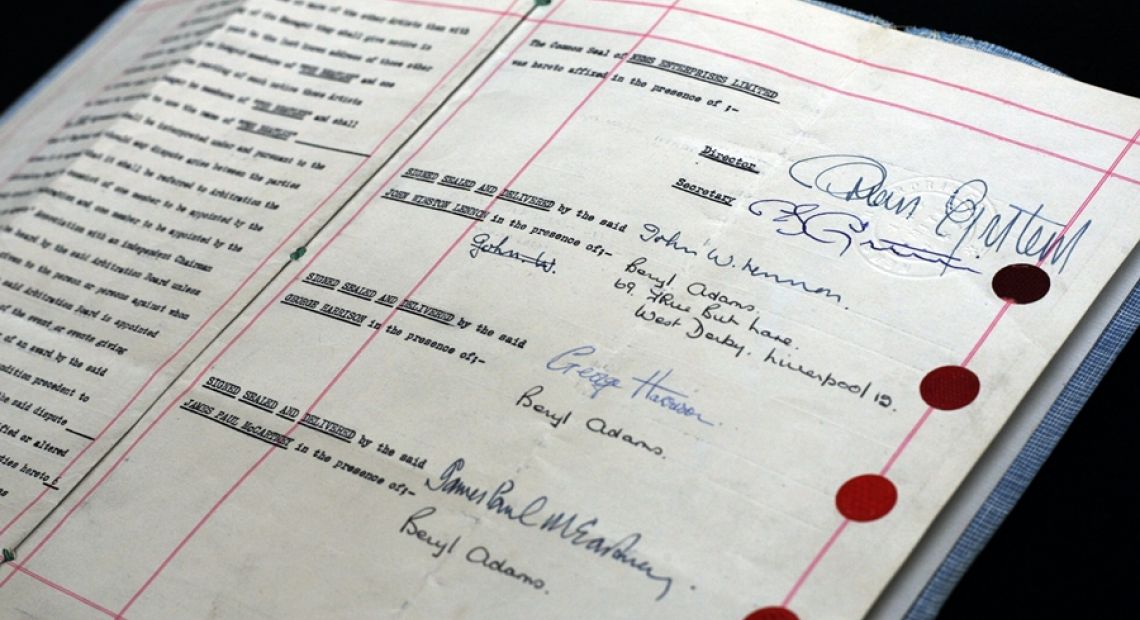 of the other Artists then with
the Manager they shall give notice in
to the last known address of those other
members of "THE BEATLES" and one
posting of such notice these Artists
be members of "THE BEATLES" and shall
to use the name of "THE BEATLES"
shall be interpreted under and pursuant to the
any dispute arise between the parties
it shall be referred to Arbitration the
of one member to be appointed by the
and one member to be appointed by the
Association with an independent Chairman
board by the said Arbitration Board unless
given to the person or persons against whom
said Arbitration Board is appointed
of the event or events giving
of an award by the said
condition precedent to
the said dispute
ified or altered
ties hereto
The Common Seal of NEMS ENTERPRISES LIMITED
was hereto affixed in the presence of ;-
Director Brian Epstein
Secretary
SIGNED SEALED AND DELIVERED by the said
JOHN WINSTON LENNON in the presence of;- John W. Lennon.
John W.
Beryl Adams.
69. Blue Bell Lane.
West Derby. Liverpool 12.
SIGNED SEALED AND DELIVERED by the said
GEORGE HARRISON in the presence of;-
George Harrison.
Beryl Adams.
SIGNED SEALED AND DELIVERED by the said
JAMES PAUL McCARTNEY in the presence of;- James Paul McCartney.
Beryl Adams.